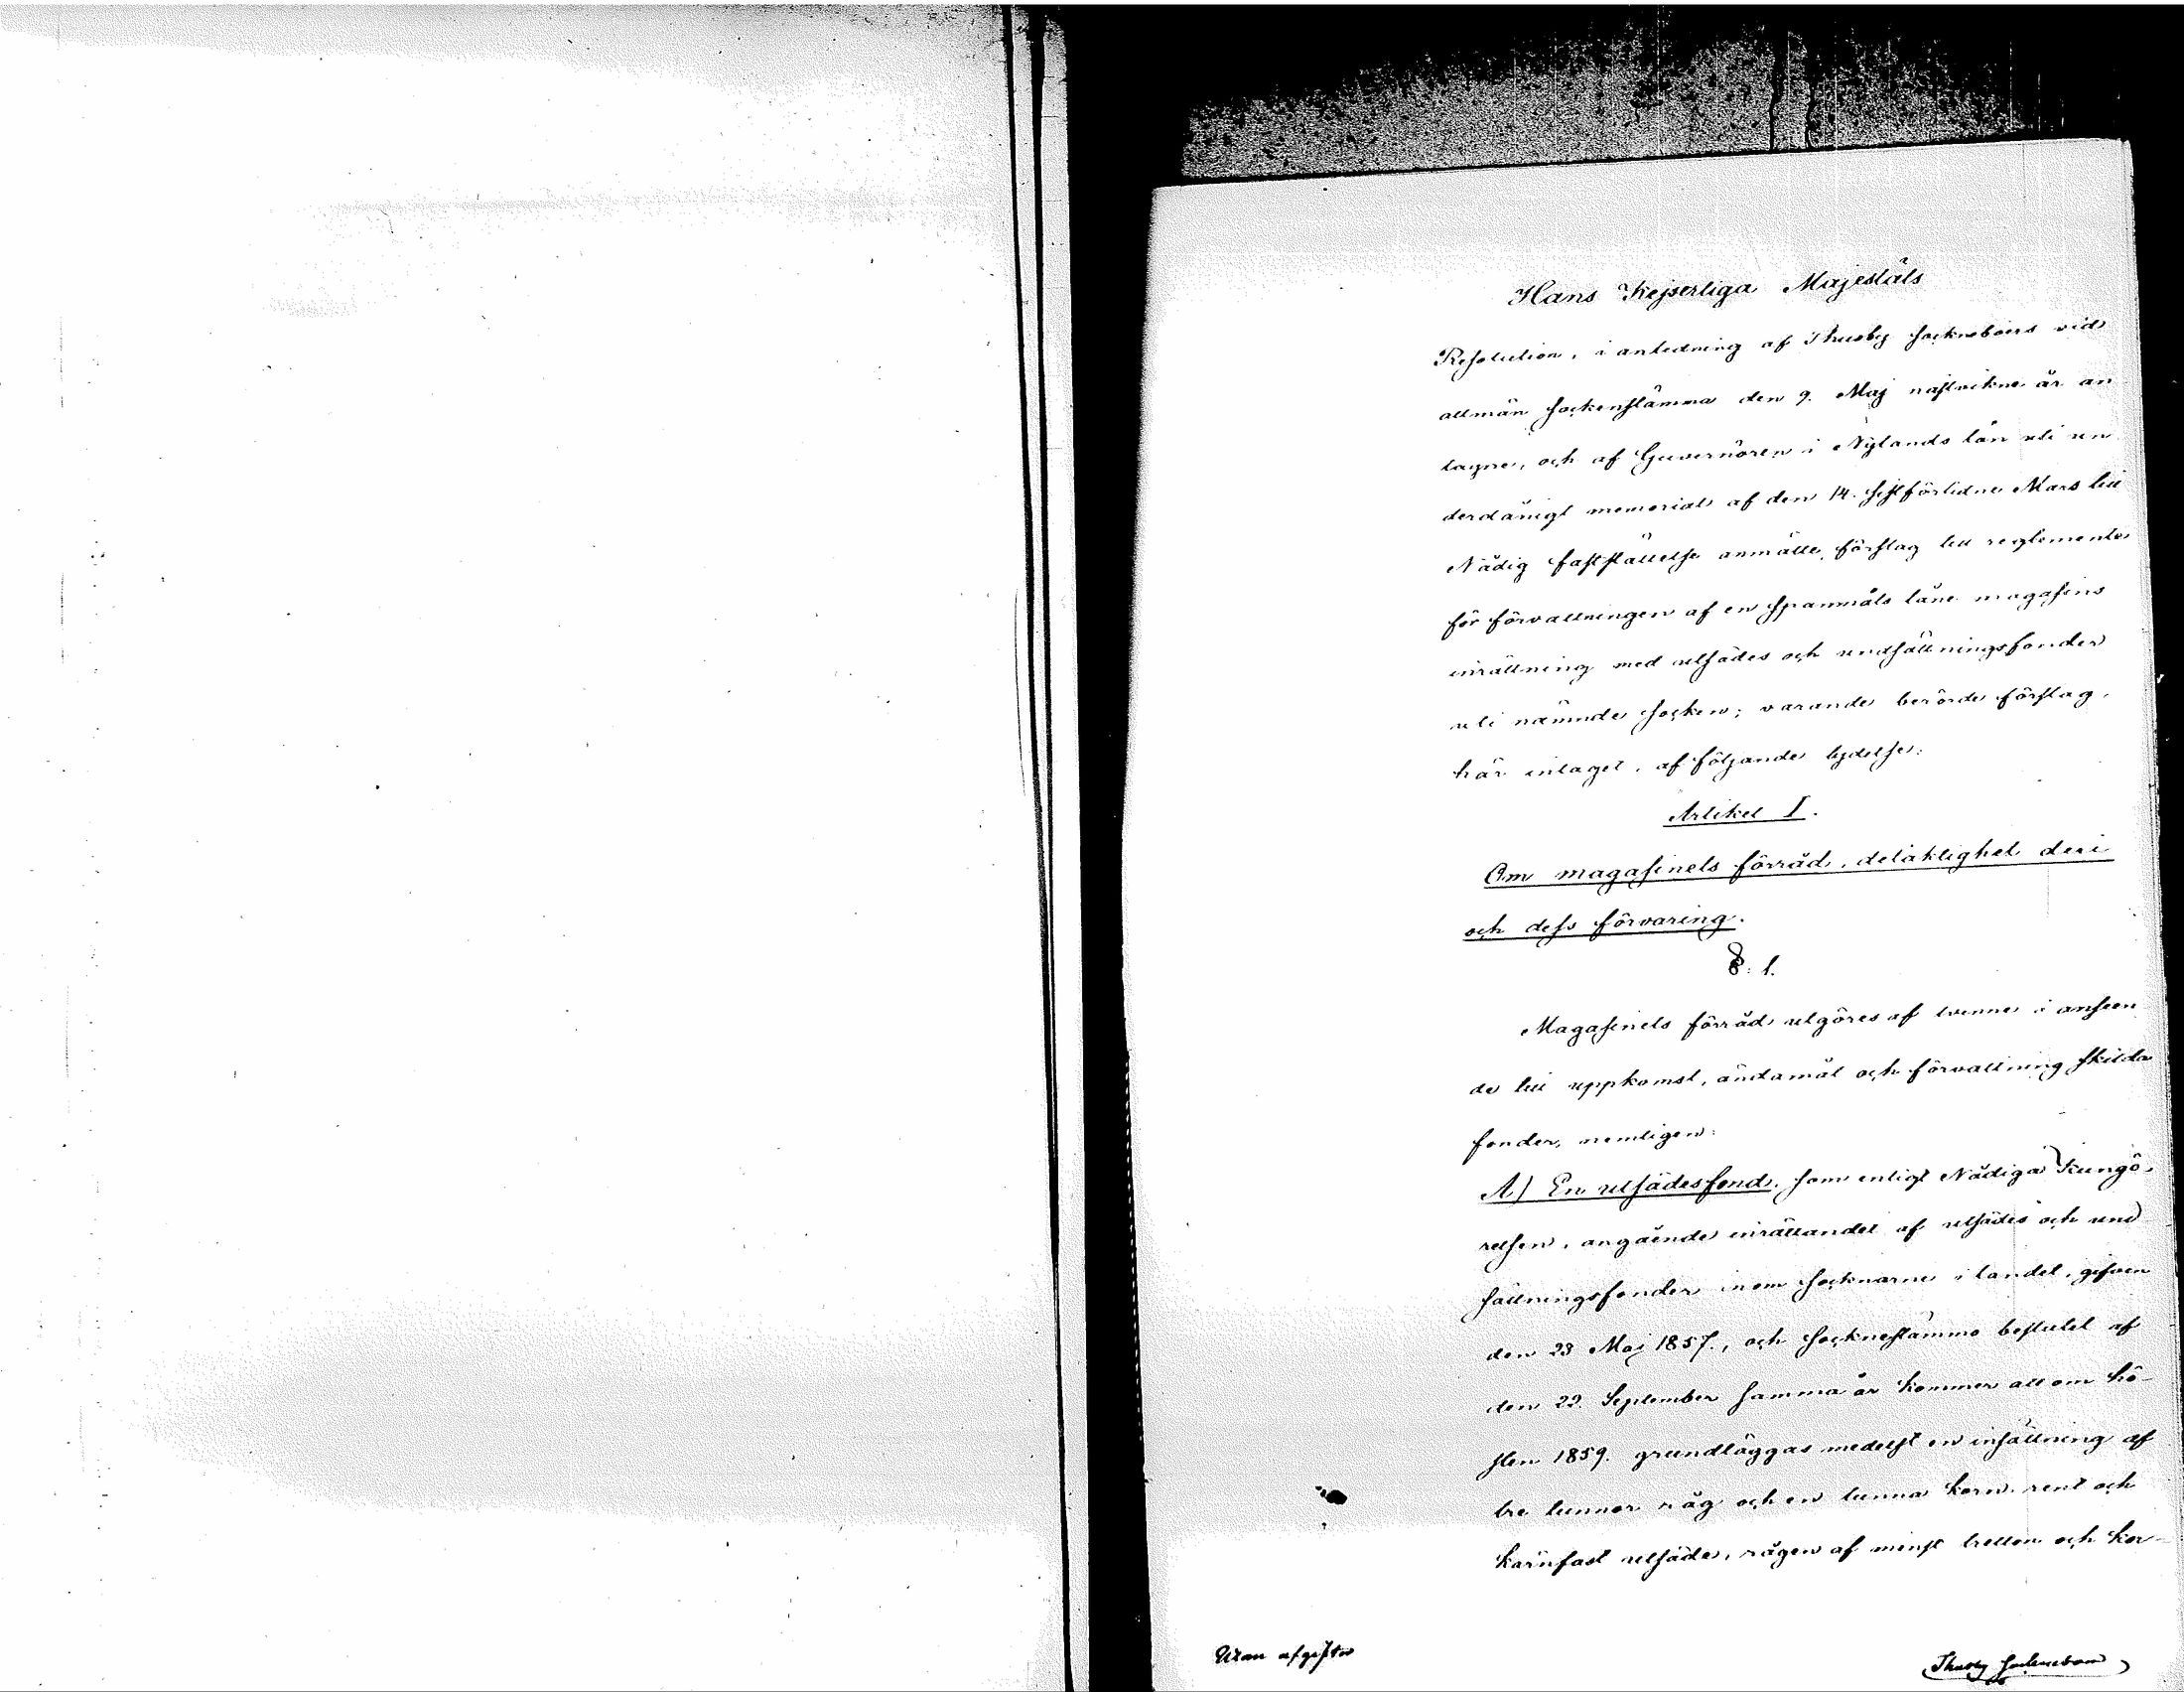 Hans Kejserliga Majestäts
Resolution, i anledning af Thusby sockneboers vid
allmän sockenstämma den 9. Maj nästvikne år an
tagne, och af Guvernören i Nylands län uti un
derdånigt memorial af den 14. sistförlidne Mars till
Nådig fastställelse anmälte, förslag till reglemente
för förvaltningen af en spanmåls låne magasins
inrättning med utsädes och undsättningsfonder
uti nämnde socken; varande berörde förslag,
här intaget, af följande lydelse:
Artikel I.
Om magasinets förråd, delaktighet deri
och dess förvaring.
§. 1.
Magasinets förråd utgöres af tvenne i anseen
de till uppkomst, ändamål och förvaltning skilda
fonder, nemligen:
A) En utsädesfond, som enligt Nådiga Kungö-
relsen, angående inrättandet af utsädes och und
sättningsfonder inom socknarne i landet, gifven
den 23 Maj 1857., och socknestämmo beslutet af
den 22. September samma år kommer att om hö-
sten 1859. grundläggas medelst en insättning af
tre tunnor råg och en tunna korn, rent och
kärnfast utsäde, rågen af minst tretton och kor-
Utan afgifter
Thusby sockneboar